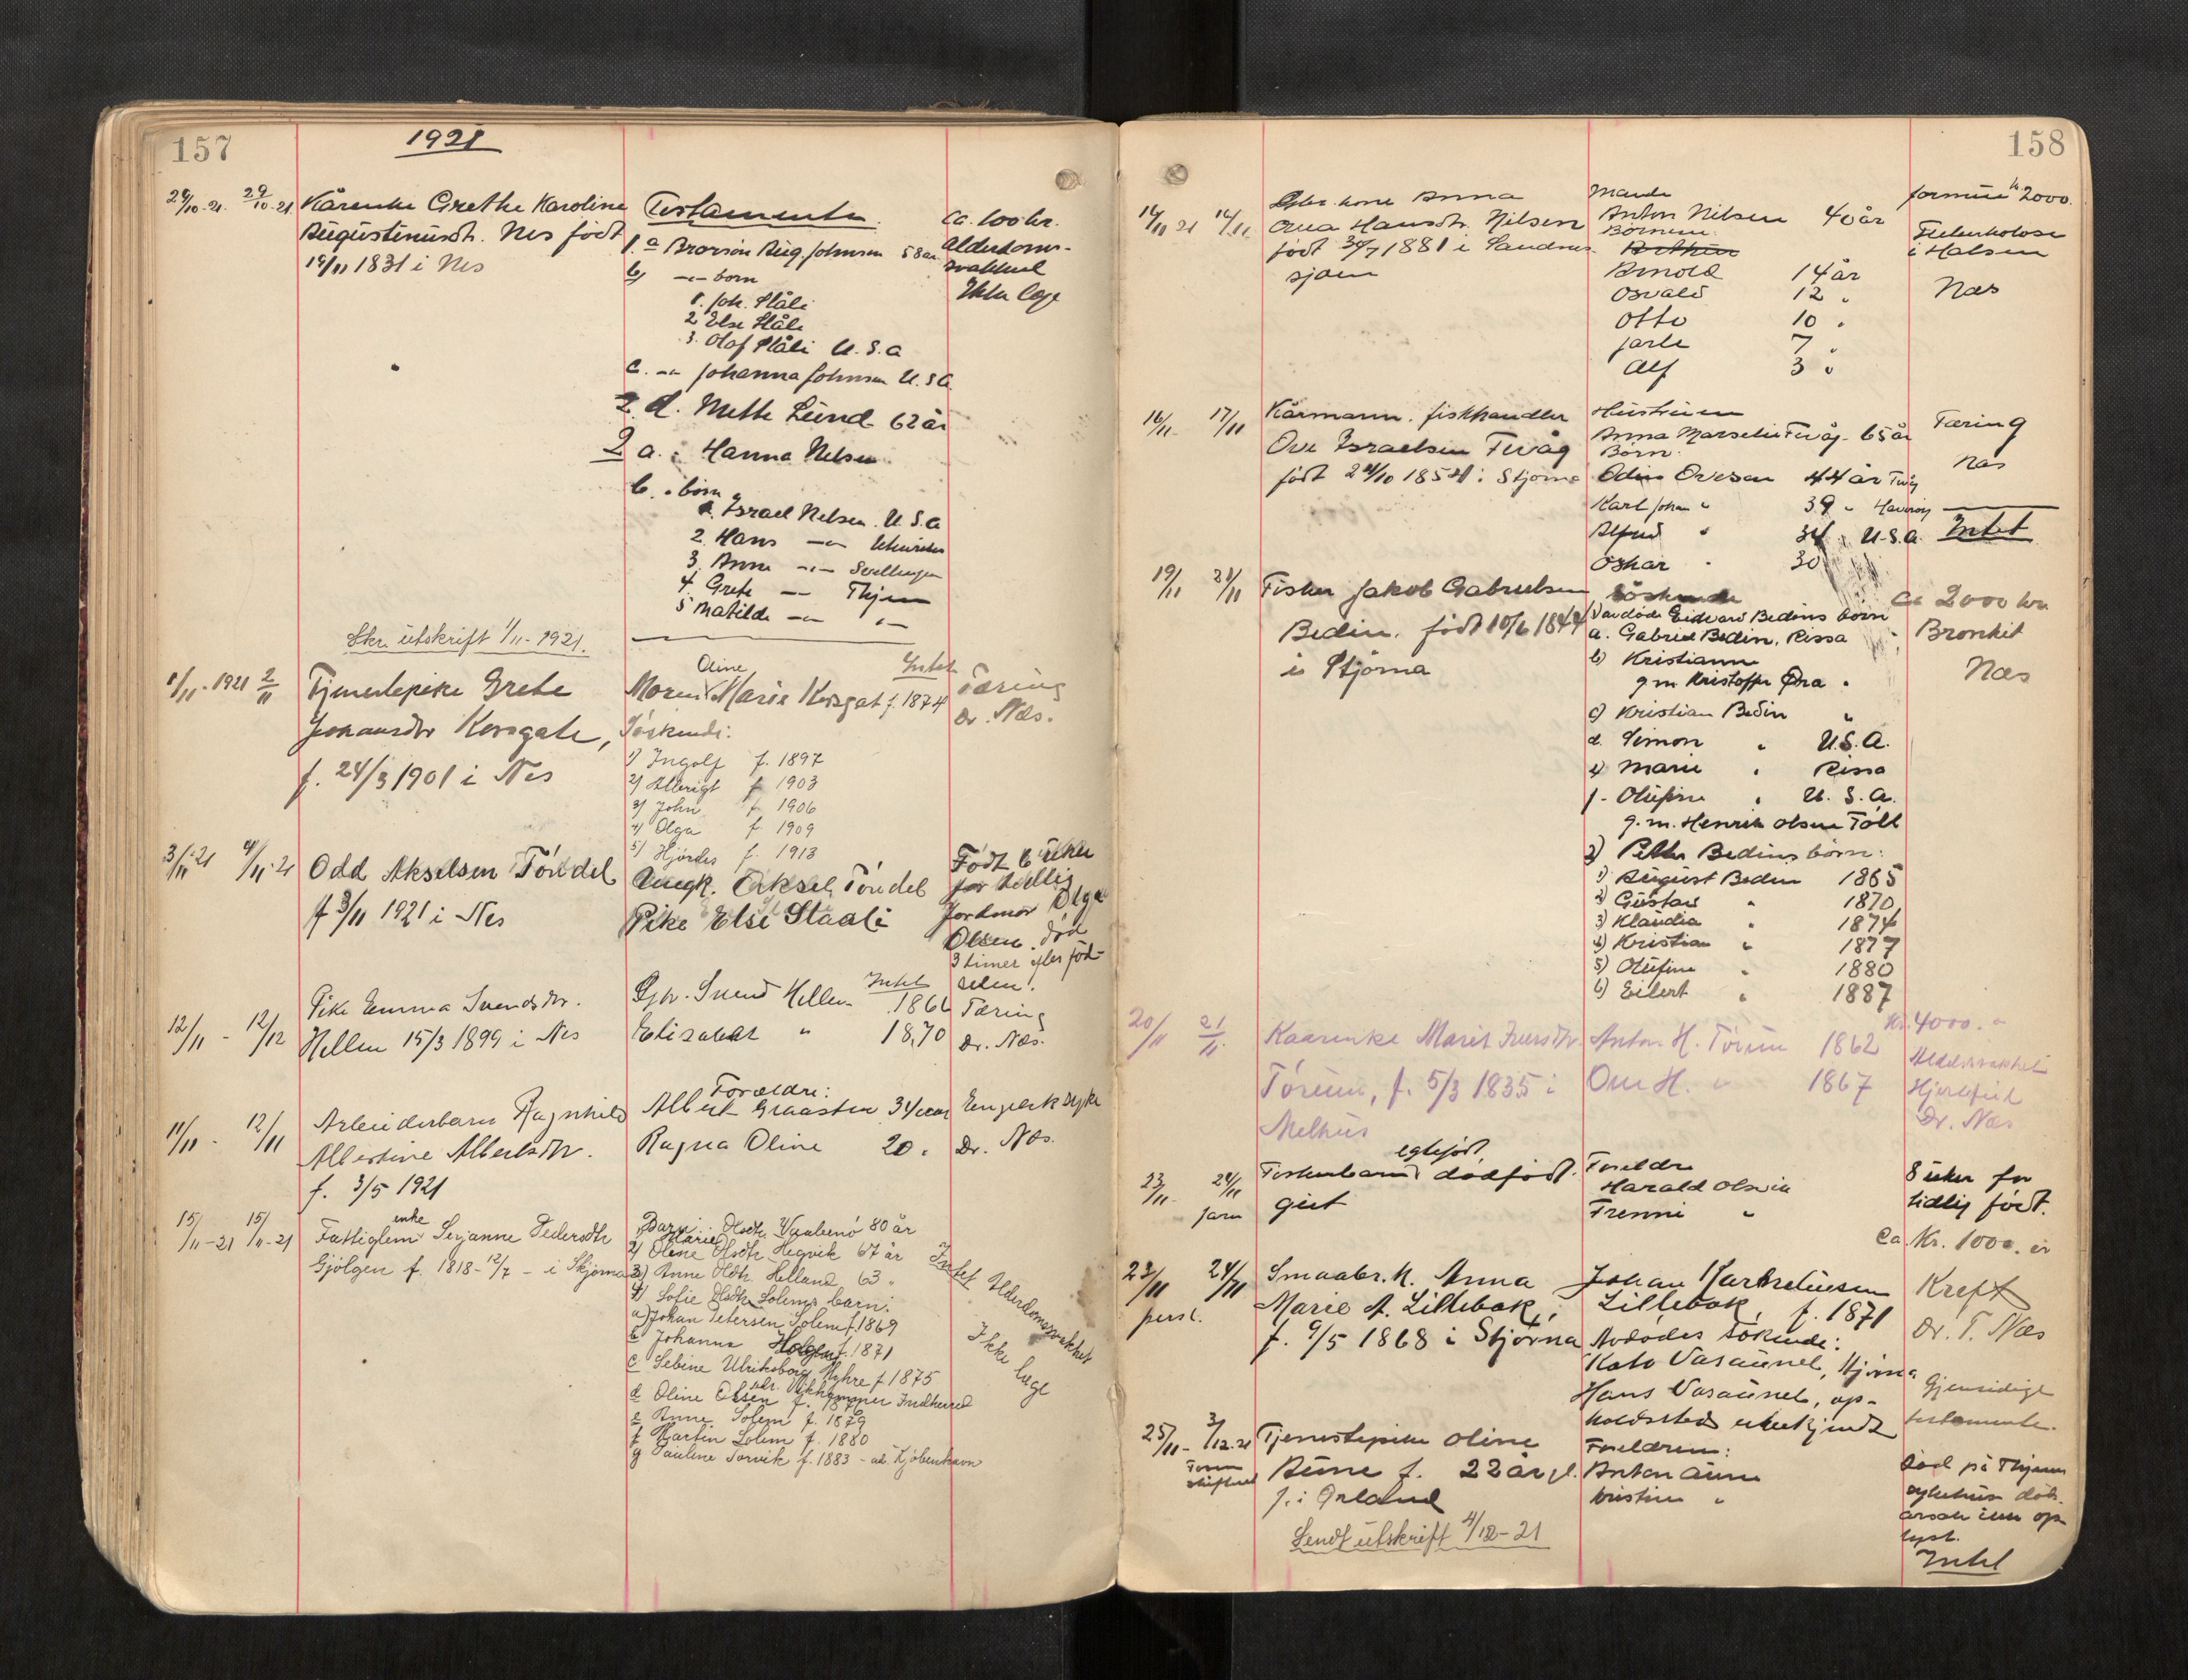 157
1921
29/10-21. 29/10-21. Kårenke Grethe Karoline
Augustinusdt. Nes født
1831 i Nes
Testamente.
1. a Brorsön Aug. Johnsen 58 år
b) born
1. Joh. Ståli
2 Else Ståli
3. Olaf Ståli U.S.a
c. Johanna Johnsen U.S.a.
2. d. Mette Lund 62 år
2 a. Hanna Nelsen
b. börn
Israel Nelsen. U.S.a
2. Hans
3. Anna
4. Grete — Thjem
5 Matilde
Ca. 600 kr.
Alderdoms-
svakhed
Ikke læge
Skr. utskrift 1/11-1921.
1/11-1921 2/11 Tjenestepike Grete
Johansdtr Korsgate,
f. 24/3 1901 i Nes
Oline
Moren Marie Korsgat f. 1874
Söskende:
1) Ingolf f. 1897
2) Albrigt f. 1903
3) John f. 1906
4) Olga f. 1909
5) Hjördes f. 1913
Intet
Tæring
Dr. Næs.
3/11-21 4/11-21 Odd Akselsen Töndel
f 3/11 1921 i Nes
Ungk. Aksel Töndel
Pike Else Staali
Født 6 uker
for tidlig
Jordmor Olga
Olsen. död
3 timer efter föd-
selen.
12/11 - 12/12 Pike Emma Svendsdtr.
Hellen 15/3 1899 i Nes
Gbr. Svend Hellen 1866
Elisabet " 1870
Intet
Tæring
Dr. Næs.
11/11 - 12/11 Arbeiderbarn Ragnhild
Albertine Albertsdtr.
f. 3/5 1921
Forældre:
Albert Graasten 34 aar
Ragna Oline 20 "
Dr. Næs.
15/11-21 15/11-21 Fattiglem enke Serianne Pedersdtr
Gjölgen f. 1818-12/7 - i Skjörna
Barn:
Marie Olsdtr. 80 år
2) Oline Olsdtr. Hegvik 67 år
3) Anne Oldtr. Helland 63 "
4) Sofie Olsdtr Solems barn:
a) Johan Petersen Solem f. 1869
b Johanna f. 1871
c Sebine Ulriksborg Myhre f 1875
d Oline Olsen
e Anna Solem f. 1879
f Martin Solem f. 1880
g Pauline Torvik f. 1883 - adr. Kjöbenhavn
Intet Alderdomssvakhet
Ikke læge
158
14/11 21 16/11. Gbr. kone Anna
Hansdtr. Nilsen
født 30/7 1881 i Sandnes
sjøen
Mand
Anton Nilsen 40 år
Börnene
Arnold 14 år
Osvald 12 "
Otto 10 "
Jarle 7 "
Alf 3 "
formue kr 2000.
Tuberkulose
i Halsen
Næs
16/11. 17/11 Kårmann. fiskhandler
Ove Israelsen Tevåg
født 24/10 1854 i Stjørna
Hustruen
Anna Marselie Tevåg - 65 år
Börn
Odin Ovesen 44 år
Karl Johan " 39 "
Alfred " 34 " U.S.a.
Oskar " 30
Tæring
Næs
Intet
19/11 21/11 Fisker Jakob Gabrielsen
Bedin. født 10/6 1844
i Stjørna
Söskende
Edvard Bedins börn
a. Gabriel Bedin, Rissa
b) Kristianne
g m Kristoffer Øra "
c) Kristian Bedin "
d. Simon " U.S.A.
e) Marie " Rissa
f. Olufine " U.S.a.
g. m. Henrik Olsen
2) Petter Bedins börn:
1) August Bedin 1865
2) Gustav " 1870
3) Klaudia " 1874
4) Kristian " 1877
5) Olufine " 1880
6) Eilert " 1887
Ca 2000 kr
Bronkit
Næs
20/11 21/11. Kaarenke Marit Iversdtr.
Törum, f. 5/3 1835 i
Melhus
Anton H. Törum 1862
Ole H. " 1867
kr. 4000. "
Alderssvakhet
Hjertefeil
Dr. Næs
23/11. 24/11 egtefødt
Fiskerbarn dödfødt.
gut
Foreldre
Harald Olsen
Frenni "
8 uker for
tidlig født.
Ca. Kr. 1000.
23/11 24/11 Smaabr. k. Anna
persl. Marie A. Lillebok,
f. 9/5 1868 i Stjørna
Johan Karneliussen
Lillebok, f. 1871
Avdødes sökende:
Kato Vasaunet, Stjørna
Hans Vasaunet, op-
holdssted ubekjendt
Kreft
Dr. T. Næs
Gjensidigt
testamente.
25/11 - 3/12.21 Tjenestepike Oline
Aune f. 22 år gl.
f. i Ørland
Foreldrene:
Anton Aune
Kristine "
Død på Thjems
sykehus døds-
årsak ikke op-
lyst.
Intet
Sendt utskrift 4/12-21